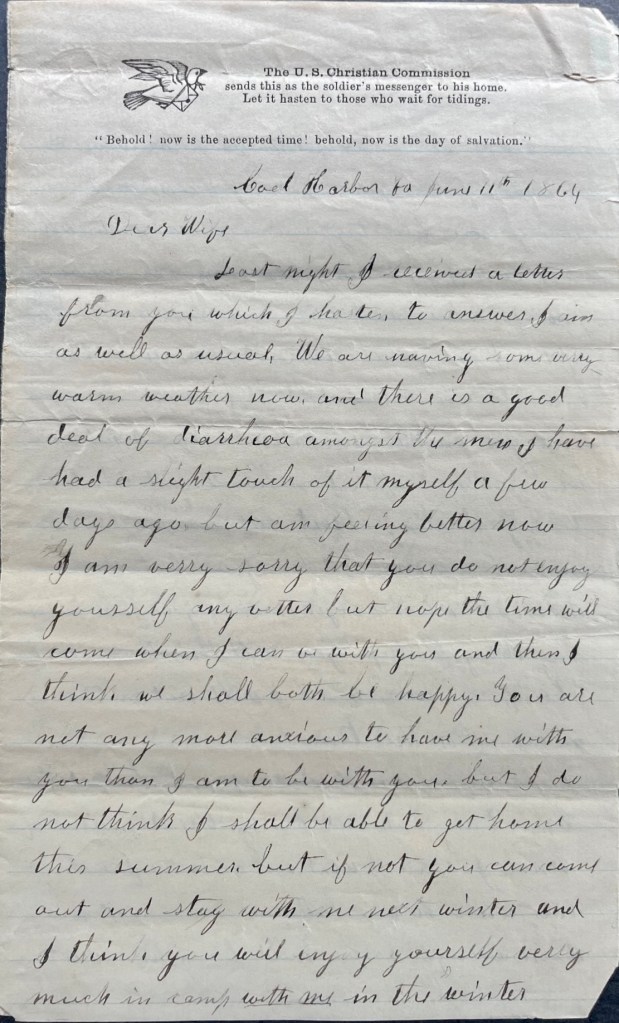 The U. S. Christian Commission
sends this as the soldier's messenger to his home.
Let it hasten to those who wait for tidings.
"Behold! now is the accepted time! behold, now is the day of salvation."
Cool Harbor Va June 11th 1864
Dear Wife
Last night I received a letter
from you which I hasten to answer, I am
as well as usual, We are having some verry
warm weather now. and there is a good
deal of diarrhoea amongst the men, I have
had a slight touch of it myself a few
days ago. but am feeling better now
I am verry sorry that you do not enjoy
yourself any better but hope the time will
come when I can be with you and then I
think we shall both be happy. You are
not any more anxious to have me with
you than I am to be with you. but I do
not think I shall be able to get home
this summer. but if not you can come
out and stay with me next winter and
I think you will injoy yourself verry
much in camp with me in the winter